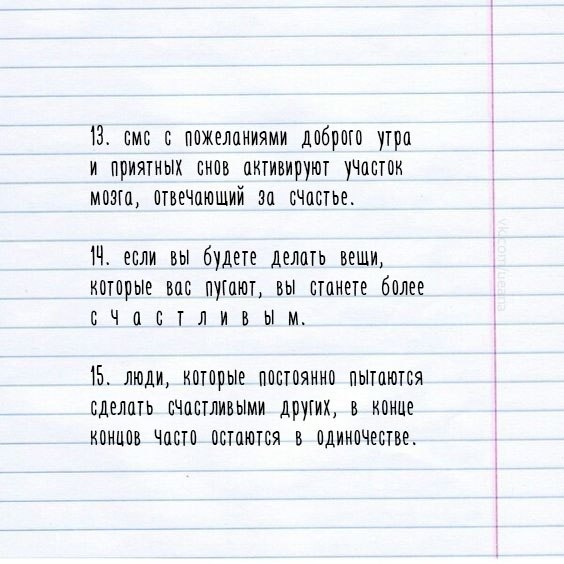 13. смс с пожеланиями доброго утра
и приятных снов активируют участок
мозга, отвечающий за счастье.
14. если вы будете делать вещи,
которые вас пугают, вы станете более
с ч а с т л и в ы м.
15. люди, которые постоянно пытаются
сделать счастливыми других, в конце
концов часто остаются в одиночестве.